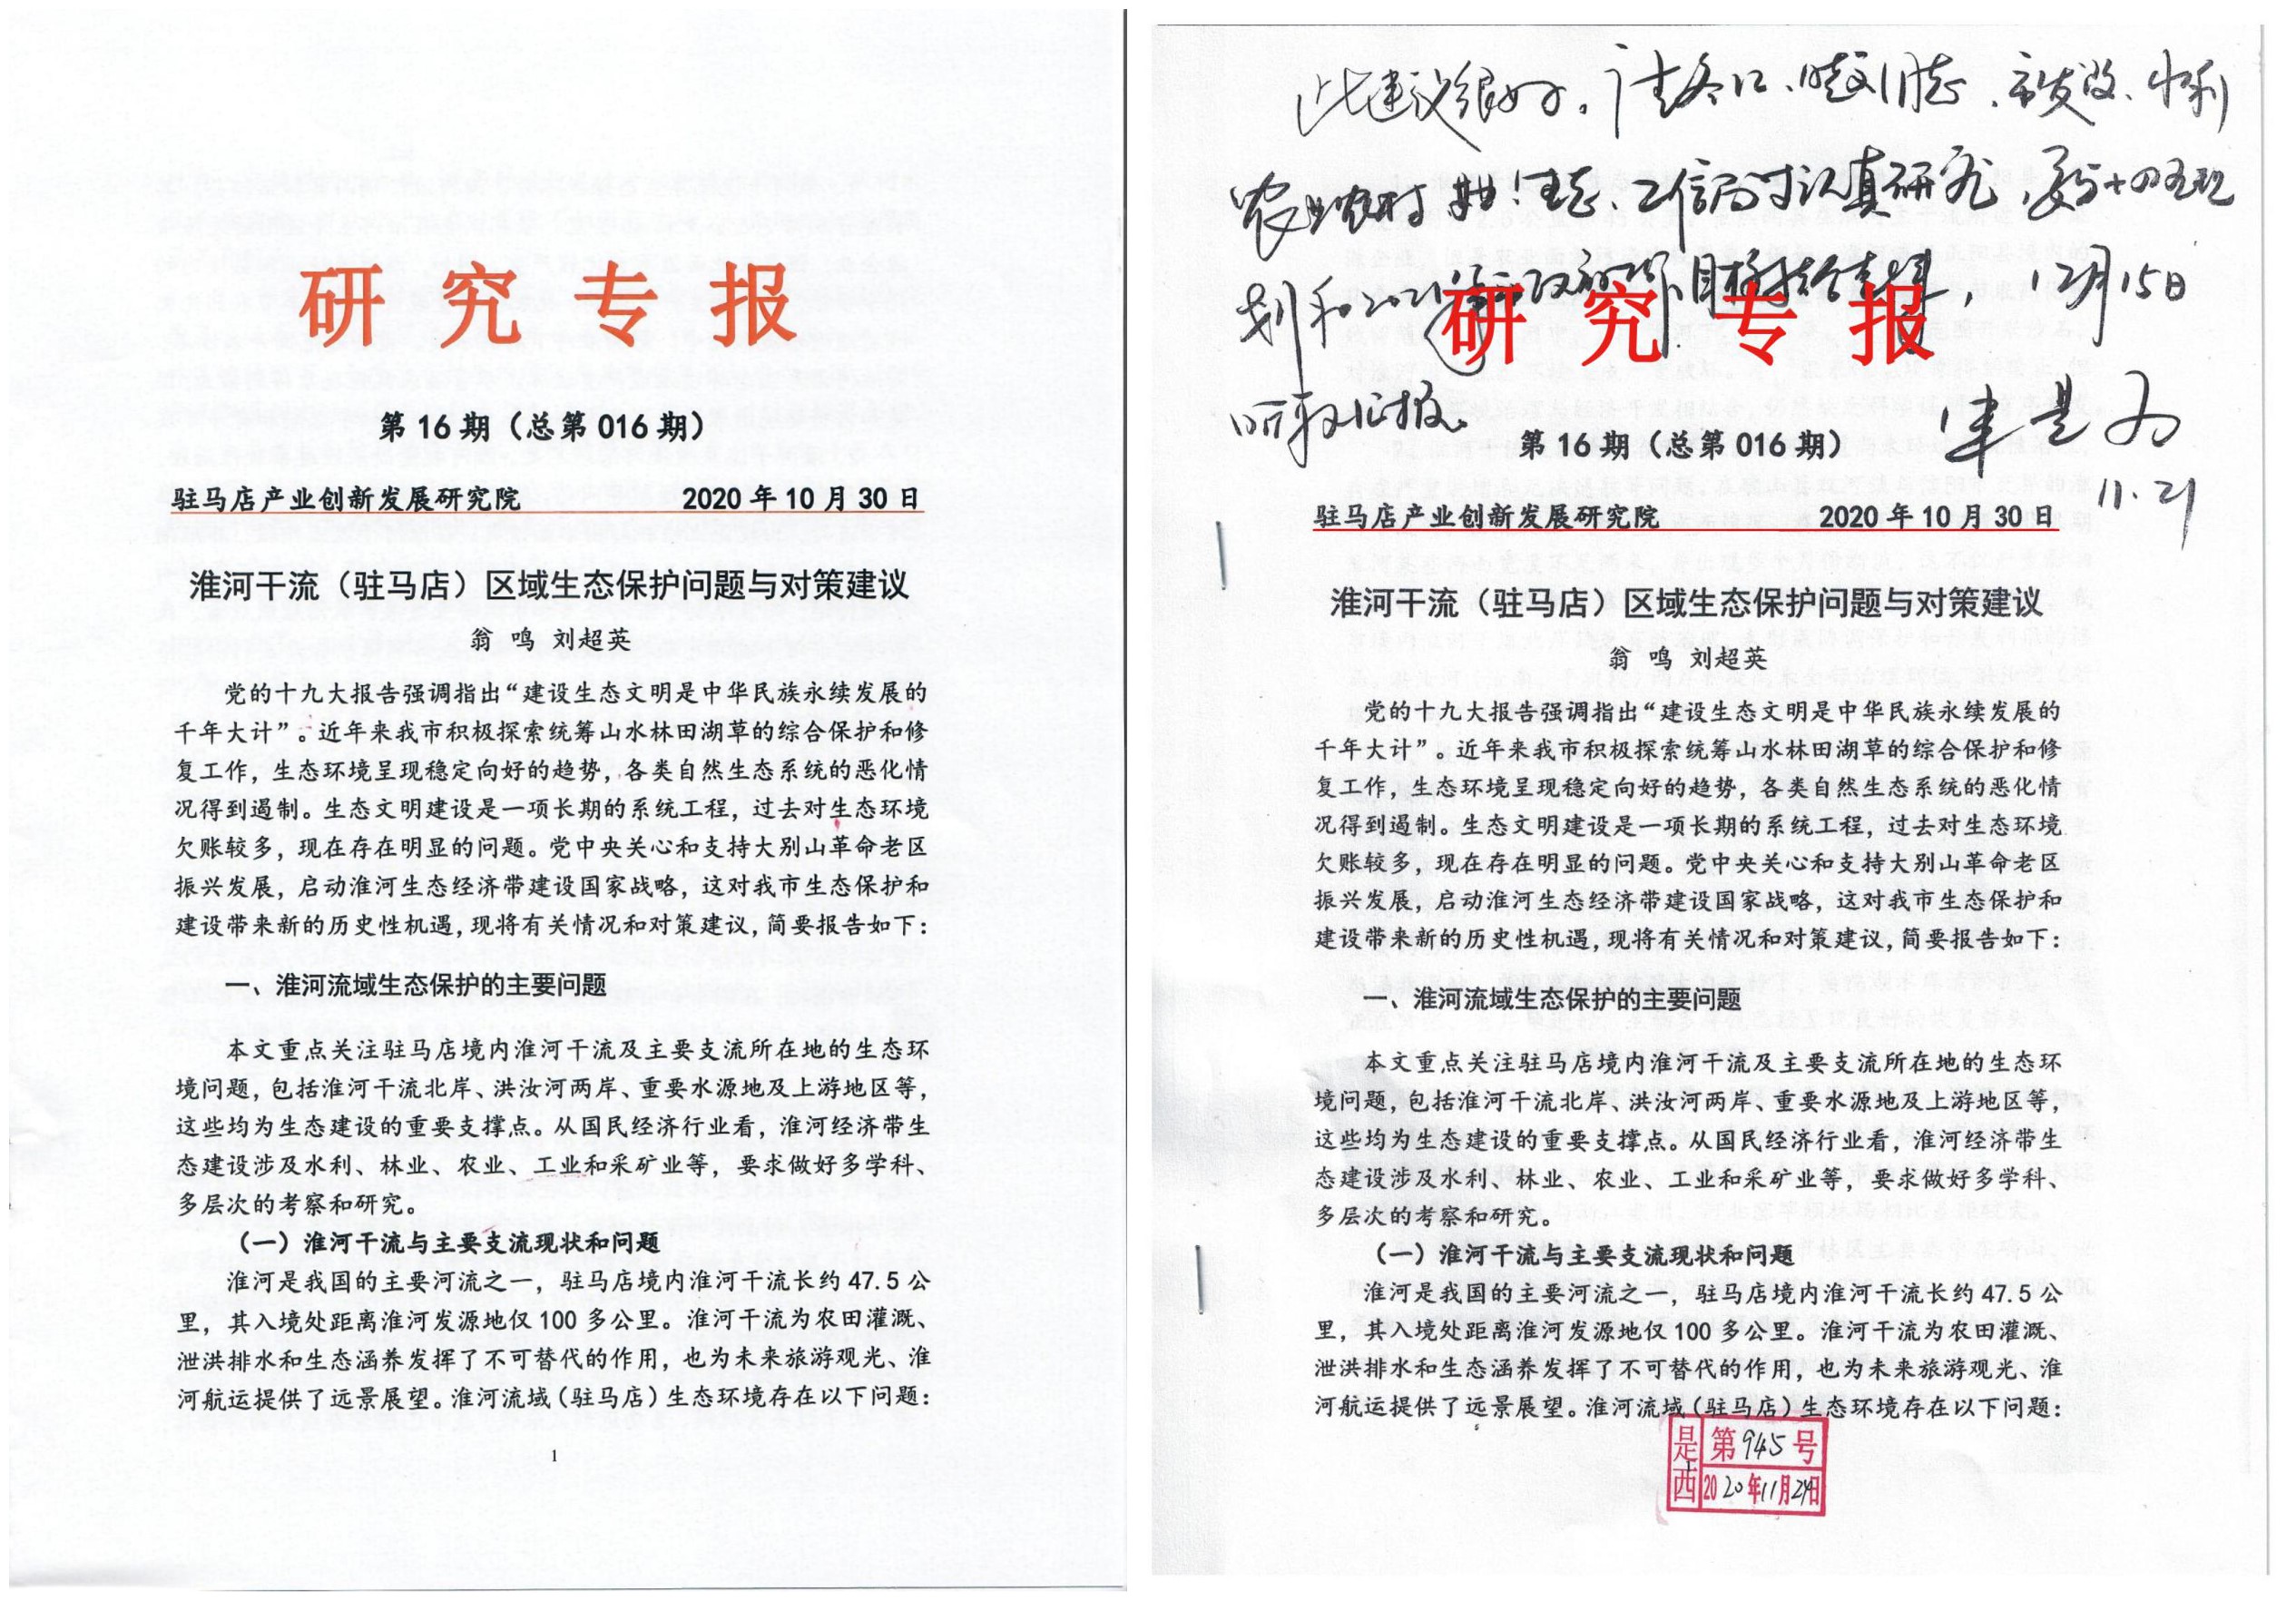 研究专报
第16期（总第016期）
驻马店产业创新发展研究院 2020年10月30日
淮河干流（驻马店）区域生态保护问题与对策建议
翁 鸣 刘超英
党的十九大报告强调指出“建设生态文明是中华民族永续发展的
千年大计”。近年来我市积极探索统筹山水林田湖草的综合保护和修
复工作，生态环境呈现稳定向好的趋势，各类自然生态系统的恶化情
况得到遏制。生态文明建设是一项长期的系统工程，过去对生态环境
欠账较多，现在存在明显的问题。党中央关心和支持大别山革命老区
振兴发展，启动淮河生态经济带建设国家战略，这对我市生态保护和
建设带来新的历史性机遇，现将有关情况和对策建议，简要报告如下：
一、淮河流域生态保护的主要问题
本文重点关注驻马店境内淮河干流及主要支流所在地的生态环
境问题，包括淮河干流北岸、洪汝河两岸、重要水源地及上游地区等，
这些均为生态建设的重要支撑点。从国民经济行业看，淮河经济带生
态建设涉及水利、林业、农业、工业和采矿业等，要求做好多学科、
多层次的考察和研究。
（一）淮河干流与主要支流现状和问题
淮河是我国的主要河流之一，驻马店境内淮河干流长约47.5公
里，其入境处距离淮河发源地仅100多公里。淮河干流为农田灌溉、
泄洪排水和生态涵养发挥了不可替代的作用，也为未来旅游观光、淮
河航运提供了远景展望。淮河流域（驻马店）生态环境存在以下问题：
1
此建议很好。请 市发改、水利
农业农村 工信局 认真研究，
划和2021 目标 12月15日
听取汇报。
11.21
研究专报
第16期（总第016期）
驻马店产业创新发展研究院 2020年10月30日
淮河干流（驻马店）区域生态保护问题与对策建议
翁 鸣 刘超英
党的十九大报告强调指出“建设生态文明是中华民族永续发展的
千年大计”。近年来我市积极探索统筹山水林田湖草的综合保护和修
复工作，生态环境呈现稳定向好的趋势，各类自然生态系统的恶化情
况得到遏制。生态文明建设是一项长期的系统工程，过去对生态环境
欠账较多，现在存在明显的问题。党中央关心和支持大别山革命老区
振兴发展，启动淮河生态经济带建设国家战略，这对我市生态保护和
建设带来新的历史性机遇，现将有关情况和对策建议，简要报告如下：
一、淮河流域生态保护的主要问题
本文重点关注驻马店境内淮河干流及主要支流所在地的生态环
境问题，包括淮河干流北岸、洪汝河两岸、重要水源地及上游地区等，
这些均为生态建设的重要支撑点。从国民经济行业看，淮河经济带生
态建设涉及水利、林业、农业、工业和采矿业等，要求做好多学科、
多层次的考察和研究。
（一）淮河干流与主要支流现状和问题
淮河是我国的主要河流之一，驻马店境内淮河干流长约47.5公
里，其入境处距离淮河发源地仅100多公里。淮河干流为农田灌溉、
泄洪排水和生态涵养发挥了不可替代的作用，也为未来旅游观光、淮
河航运提供了远景展望。淮河流域（驻马店）生态环境存在以下问题：
是西 第945号
2020年11月24日